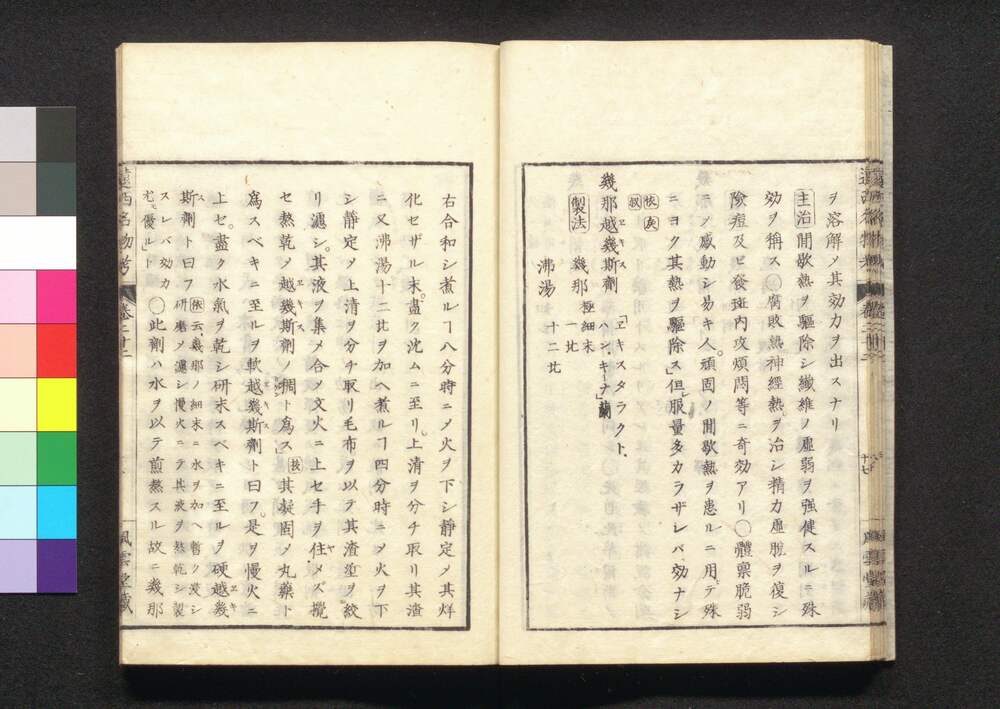 ヲ溶解〆其効力ヲ出スナリ
主治 間歇熱ヲ驅除シ纖維ノ虛弱ヲ强健スルニ殊
効ヲ稱ス○腐敗熱神經熱ヲ治シ精力虛脫ヲ復シ
險痘及ヒ發斑內攻煩悶等ニ奇効アリ○體禀脆弱
ニ〆感動シ易キ人頑固ノ間歇熱ヲ患ルニ用テ殊
ニヨク其熱ヲ驅除ス但服量多カラザレバ効ナシ
幾那越幾斯劑 「ヱキスタラクト、ハン、キーナ」蘭
製法 幾那 極細末 一㕥
沸湯 十二㕥
右合和シ煮ルヿ八分時ニ〆火ヲ下シ靜定〆其烊
化セザル末盡ク沈ムニ至リ上淸ヲ分チ取リ其渣
ニ又沸湯十二㕥ヲ加ヘ煮ルヿ四分時ニ〆火ヲ下
シ靜定〆上淸ヲ分チ取リ毛布ヲ以テ其渣滓ヲ絞
リ濾シ其液ヲ集メ合〆文火ニ上セ手ヲ住メズ攪
セ熬乾〆越幾斯劑ノ稠ト爲ス 按 其凝固〆丸藥ト
爲スベキニ至ルヲ軟越幾斯劑ト曰フ是ヲ慢火ニ
上セ盡ク水氣ヲ乾シ研末スベキニ至ルヲ硬越幾
斯劑ト曰フ 依云幾那ノ細末ニ水ヲ加ヘ暫ク浸シ
研磨〆濾シ慢火ニテ其液ヲ熬乾シ製
スレバ効力尤優ルト○此劑ハ水ヲ以テ煎熬スル故ニ幾那
遠西名物考 卷二十二
風雲堂藏